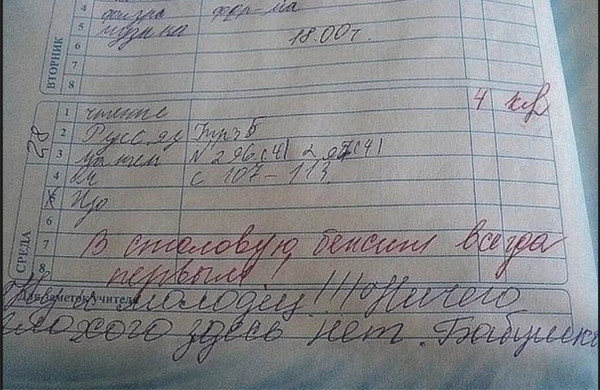 4
5 физра форма
6 музыка 18.00 г.
7
8
ВТОРНИК
28
1 чтение 4
2 Русс. яз Упр 5
3 матем N 296 (4) 297 (4)
4 с 107 – 113
5 Изо
6
7 В столовую бежит всегда
8 первым!
СРЕДА
Для заметок учителя
Ну и молодец!!! Ничего
плохого здесь нет. Бабушка